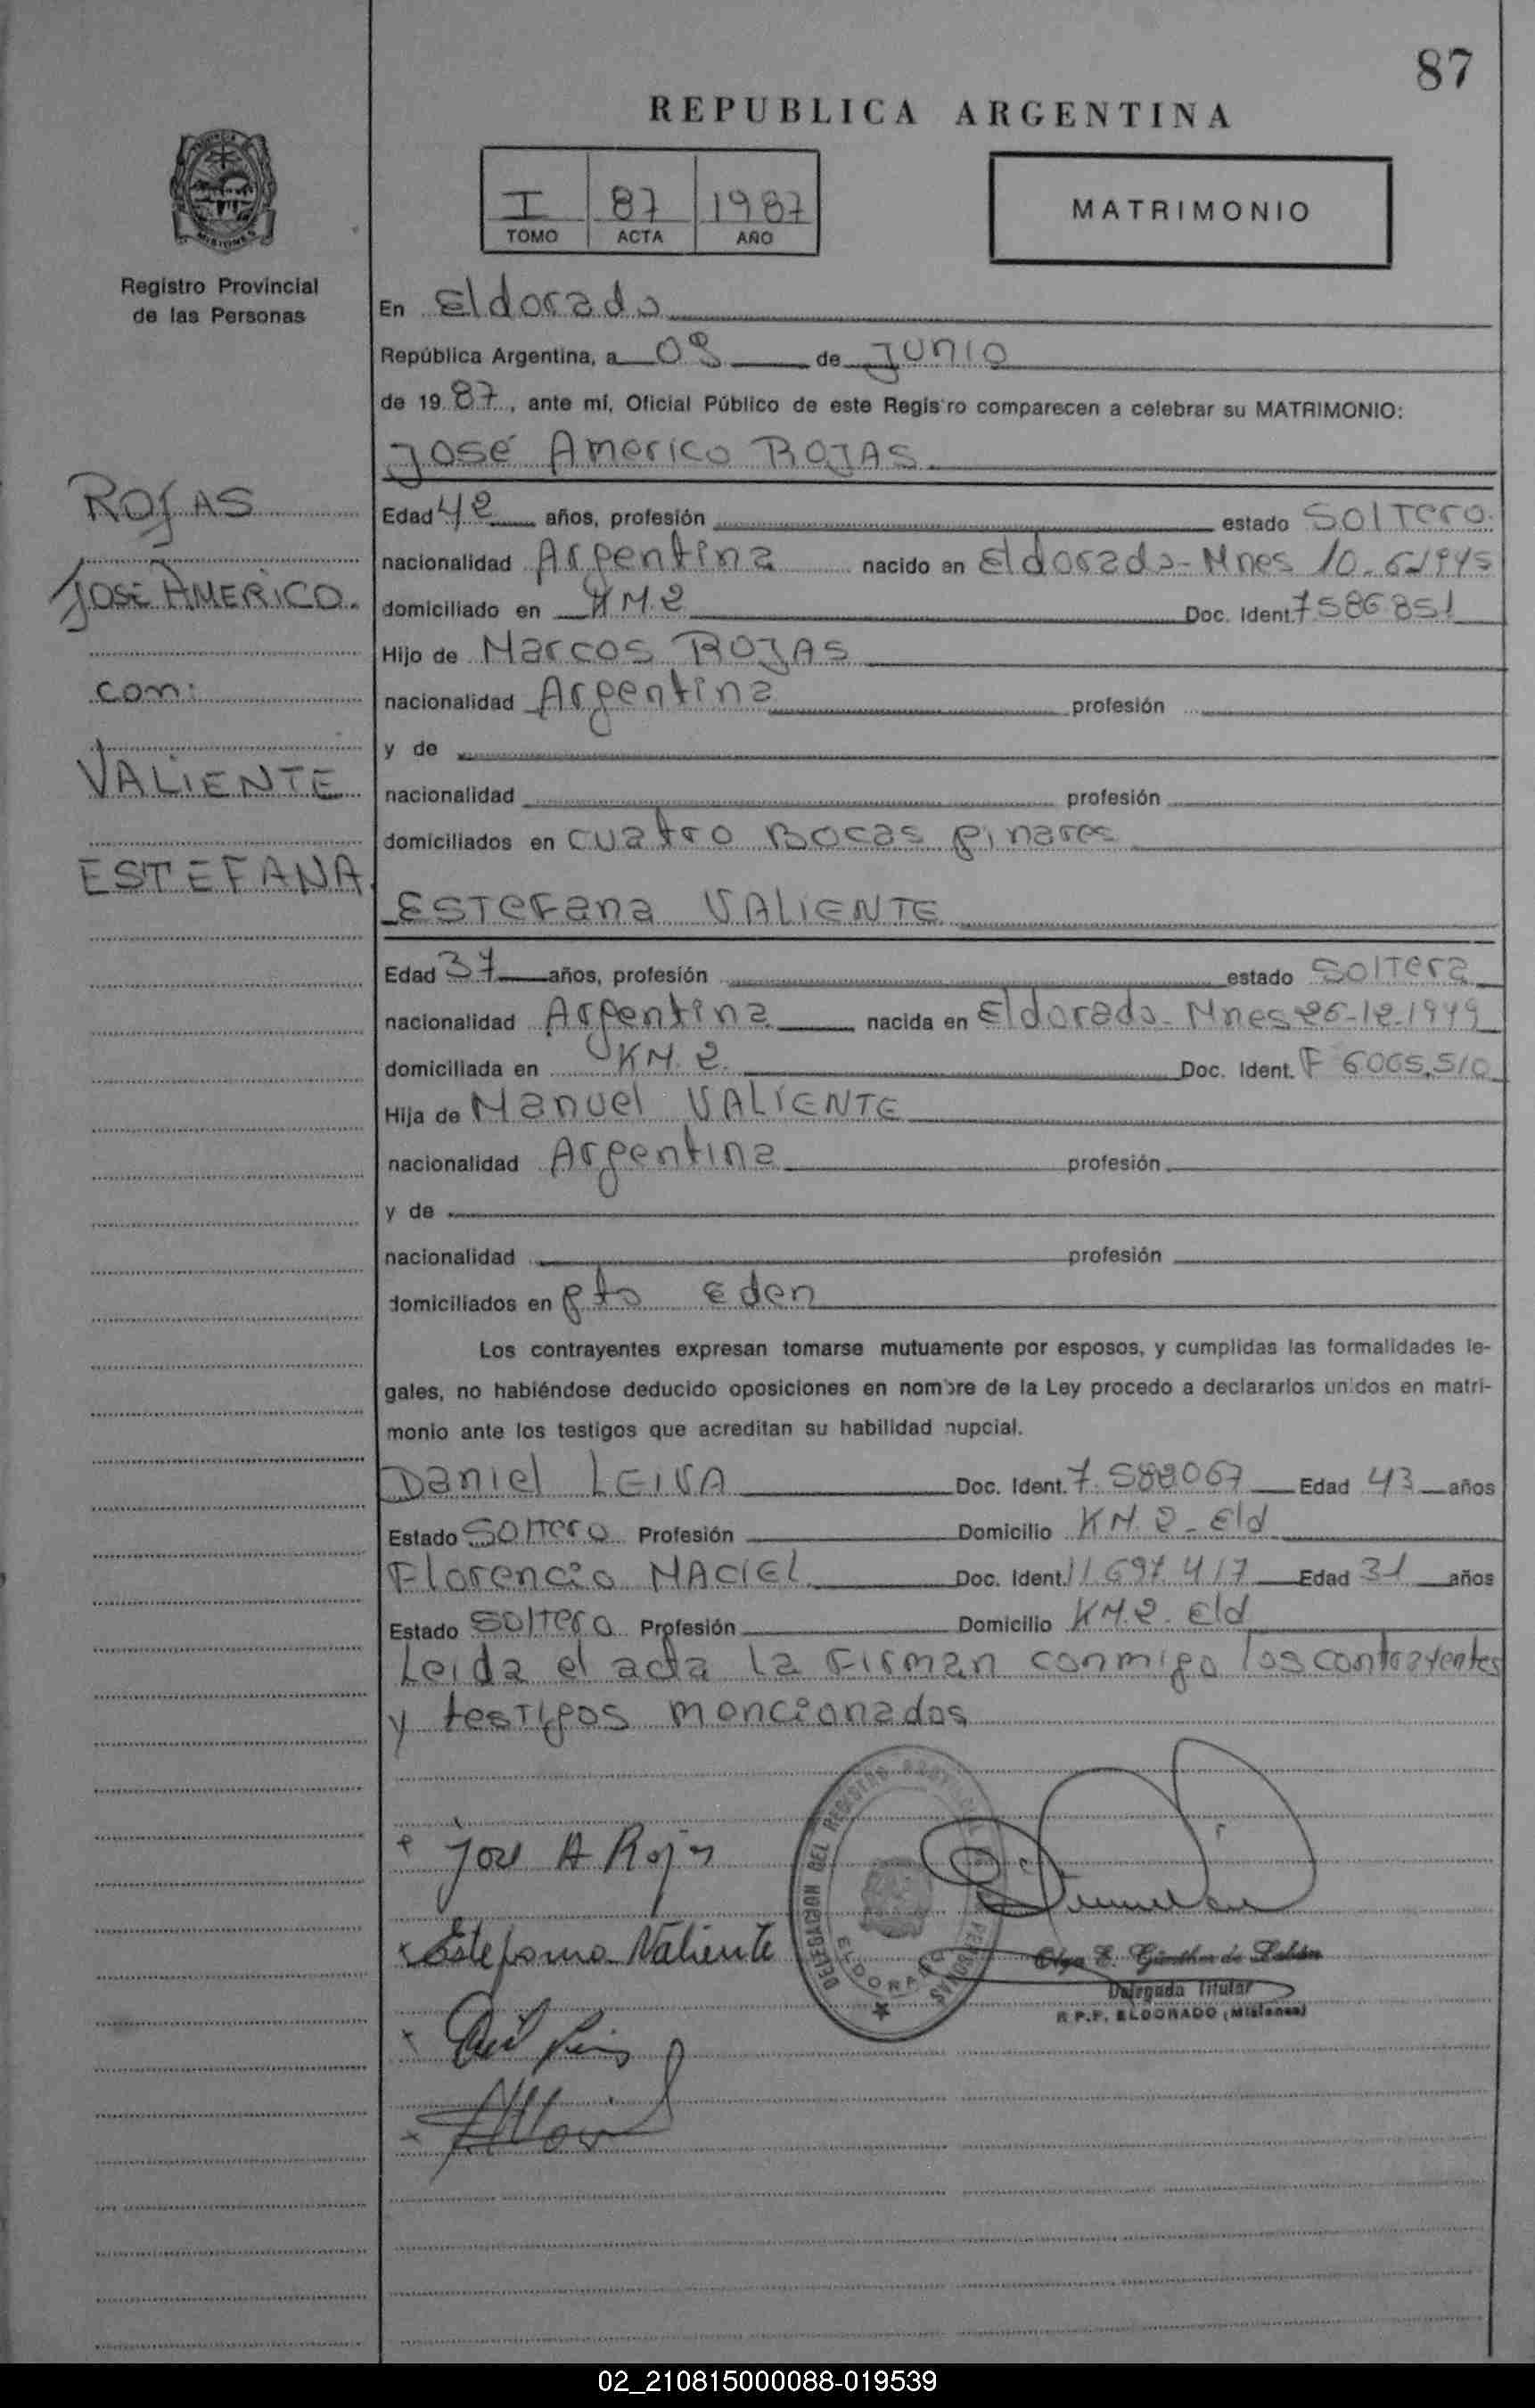 87
REPUBLICA ARGENTINA
I 87 1987
TOMO ACTA AÑO
MATRIMONIO
MISIONES
Registro Provincial
de las Personas
En Eldorado
República Argentina, a 09 de Junio
de 1987, ante mí, Oficial Público de este Registro comparecen a celebrar su MATRIMONIO:
José Americo ROJAS
ROJAS
JOSÉ AMERICO.
con:
VALIENTE
ESTEFANA
Edad 42 años, profesión estado Soltero
nacionalidad Argentina nacido en Eldorado-Mnes 10-6-1945
domiciliado en KM.2 Doc. Ident. 7586851
Hijo de Marcos ROJAS
nacionalidad Argentina profesión
y de
nacionalidad profesión
domiciliados en cuatro Bocas pinares
ESTEFana VALIENTE
Edad 37 años, profesión estado Soltera
nacionalidad Argentina nacida en Eldorado-Mnes 26-12-1949
domiciliada en KM.2 Doc. Ident. F 6065.510
Hija de Manuel VALIENTE
nacionalidad Argentina profesión
y de
nacionalidad profesión
domiciliados en pto Eden
Los contrayentes expresan tomarse mutuamente por esposos, y cumplidas las formalidades le-
gales, no habiéndose deducido oposiciones en nombre de la Ley procedo a declararlos unidos en matri-
monio ante los testigos que acreditan su habilidad nupcial.
Daniel LEIVA Doc. Ident. 7.588067 Edad 43 años
Estado Soltero Profesión Domicilio KM.2-Eld
Florencio MACIEL Doc. Ident. 11697417 Edad 31 años
Estado Soltero Profesión Domicilio KM.2-Eld
Leida el acta la Firman conmigo los contrayentes
y testigos mencionados
José A Rojas
Estefana Valiente
DELEGACION DEL REGISTRO PERSONAS
ELDORADO
Olga E. Günther de
Delegada Titular
R.P.P. ELDORADO (Misiones)
02_210815000088-019539